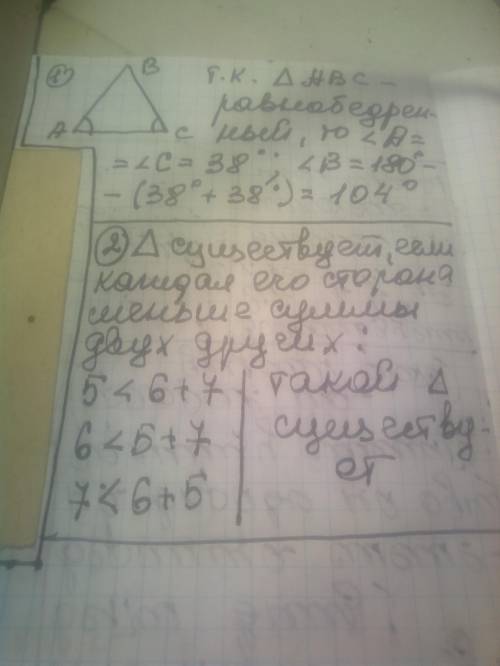 1) B т.к. △ ABC –
равнобедрен-
A C ный, то ∠A=
=∠C=38°; ∠B=180°–
–(38°+38°)=104°
2) △ существует, если
каждая его сторона
меньше суммы
двух других:
5<6+7 такой △
6<5+7 существу-
7<6+5 ет